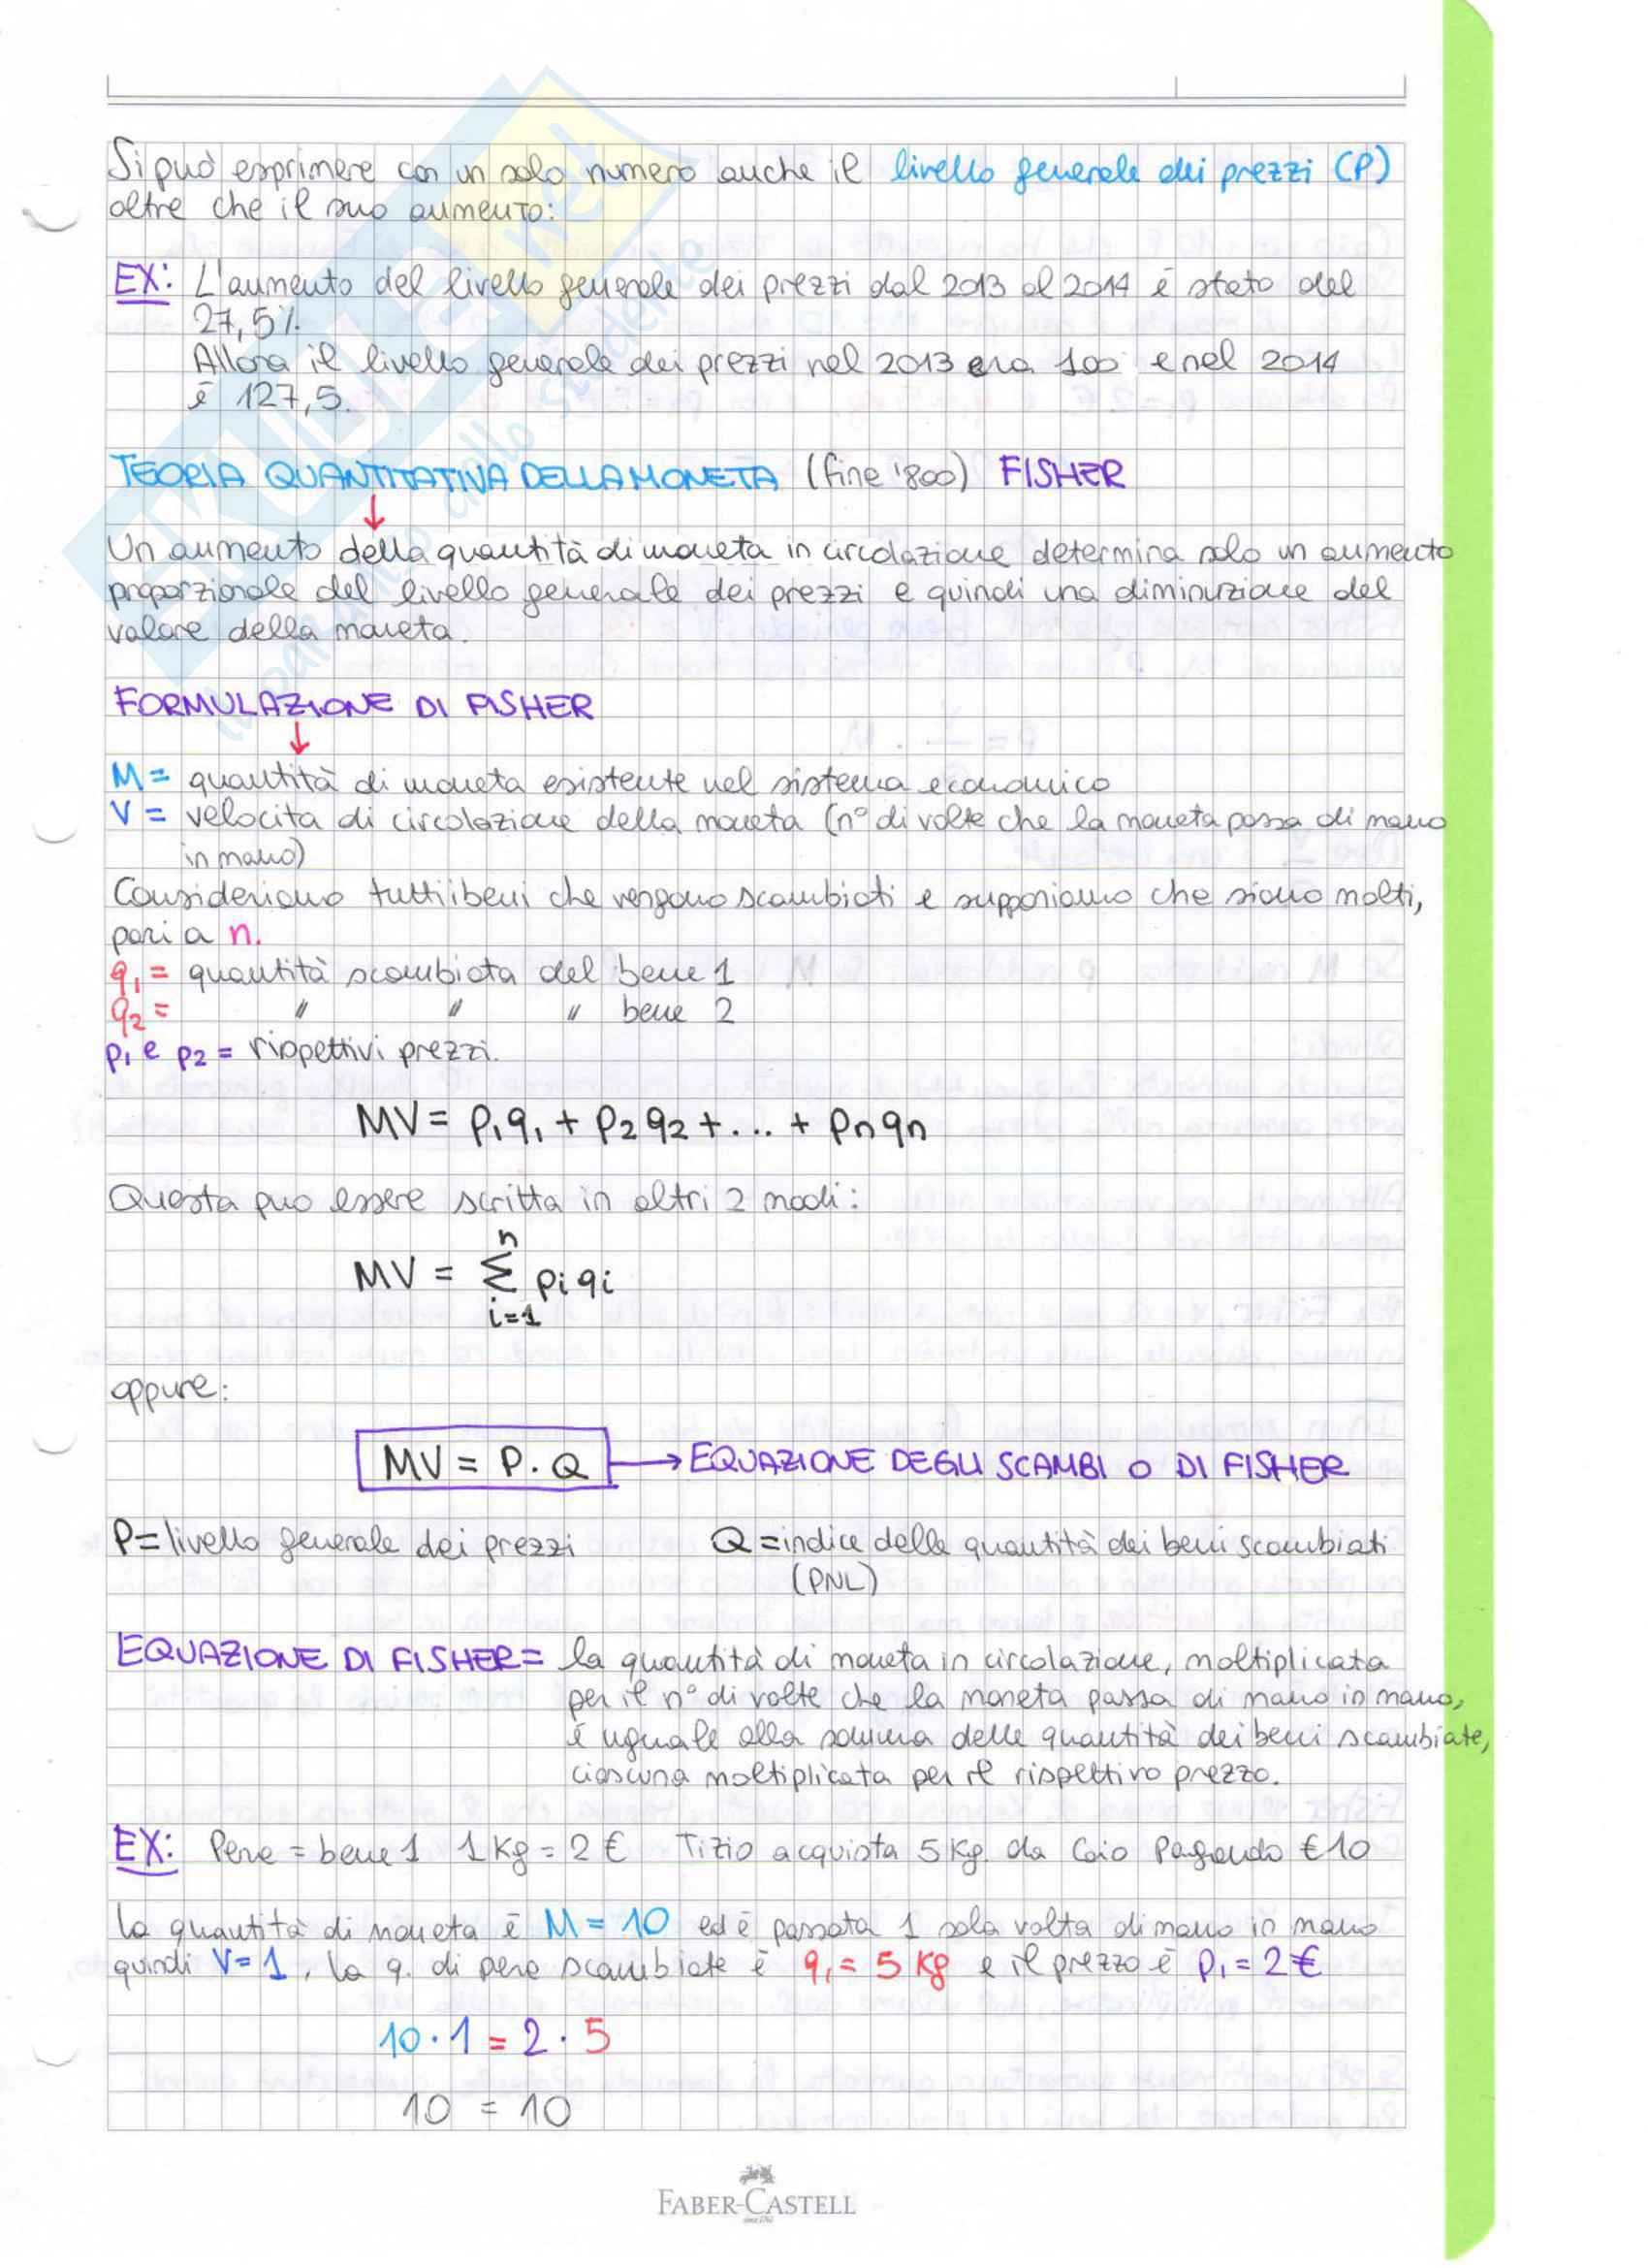 Si può esprimere con un solo numero anche il livello generale dei prezzi (P)
oltre che il suo aumento:
EX: L'aumento del livello generale dei prezzi dal 2013 al 2014 è stato del
27,5%.
Allora il livello generale dei prezzi nel 2013 era 100 e nel 2014
è 127,5.
TEORIA QUANTITATIVA DELLA MONETA (fine '800) FISHER
↓
Un aumento della quantità di moneta in circolazione determina solo un aumento
proporzionale del livello generale dei prezzi e quindi una diminuzione del
valore della moneta.
FORMULAZIONE DI FISHER
↓
M = quantità di moneta esistente nel sistema economico
V = velocita di circolazione della moneta (n° di volte che la moneta passa di mano
in mano)
Consideriamo tutti i beni che vengono scambiati e supponiamo che siano molti,
pari a n.
q₁ = quantità scambiata del bene 1
q₂ = " " " bene 2
p₁ e p₂ = rispettivi prezzi.
MV = p₁q₁ + p₂q₂ + ... + pnqn
Questa puo essere scritta in altri 2 modi:
n
MV = Σ piqi
i=1
oppure:
MV = P · Q → EQUAZIONE DEGLI SCAMBI O DI FISHER
P = livello generale dei prezzi Q = indice delle quantità dei beni scambiati
(PNL)
EQUAZIONE DI FISHER = la quantità di moneta in circolazione, moltiplicata
per il n° di volte che la moneta passa di mano in mano,
è uguale alla somma delle quantità dei beni scambiate,
ciascuna moltiplicata per il rispettivo prezzo.
EX: Pere = bene 1 1 Kg = 2 € Tizio acquista 5 Kg. da Caio Pagando € 10
La quantità di moneta è M = 10 ed è passata 1 sola volta di mano in mano
quindi V = 1, la q. di pere scambiate è q₁ = 5 Kg e il prezzo è p₁ = 2 €
10 · 1 = 2 · 5
10 = 10
FABER-CASTELL
since 1761